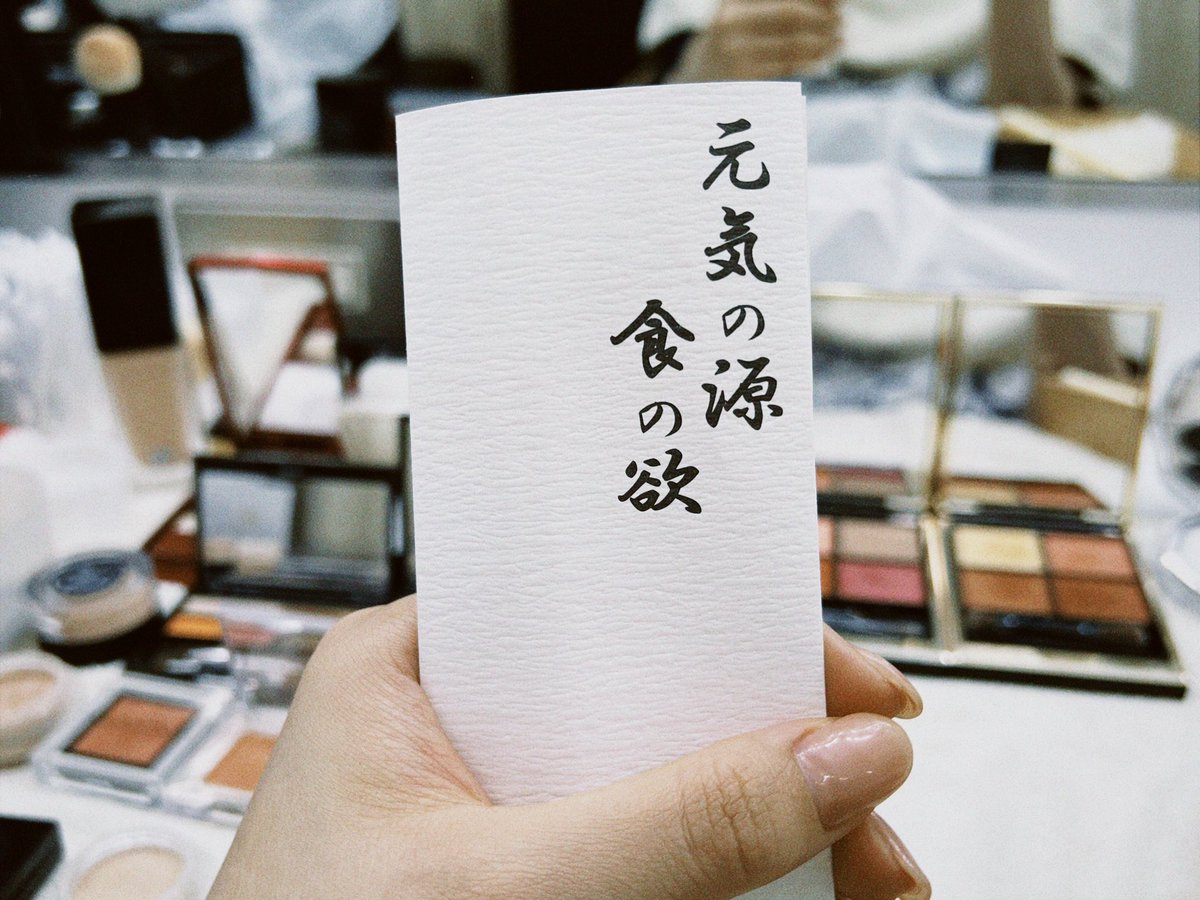 元気の源
食の欲